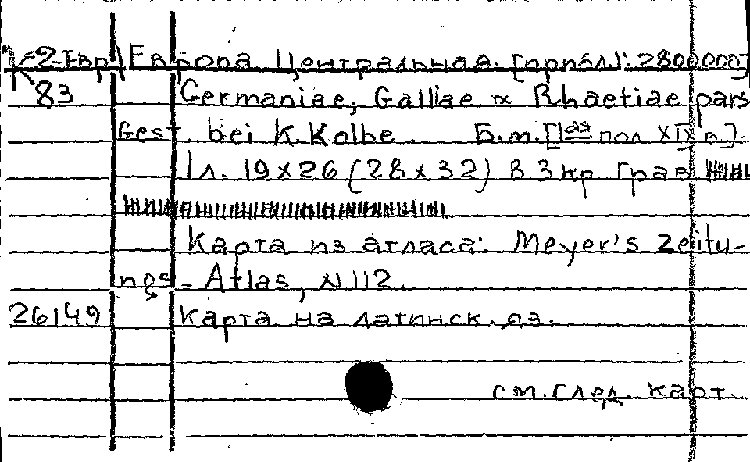 К2-Евр Европа Центральная. [прибл]: 2800000]
83 Germaniae, Galliae & Rhaetiae pars
Gest. bei K. Kolbe Б.м. [1ая пол XIX в].
1л. 19x26 (28x32) в 3 кр грав
Карта из атласа: Meyer's Zeitu-
ngs-Atlas, N 112.
26149 Карта на латинск. яз.
см. след. карт.